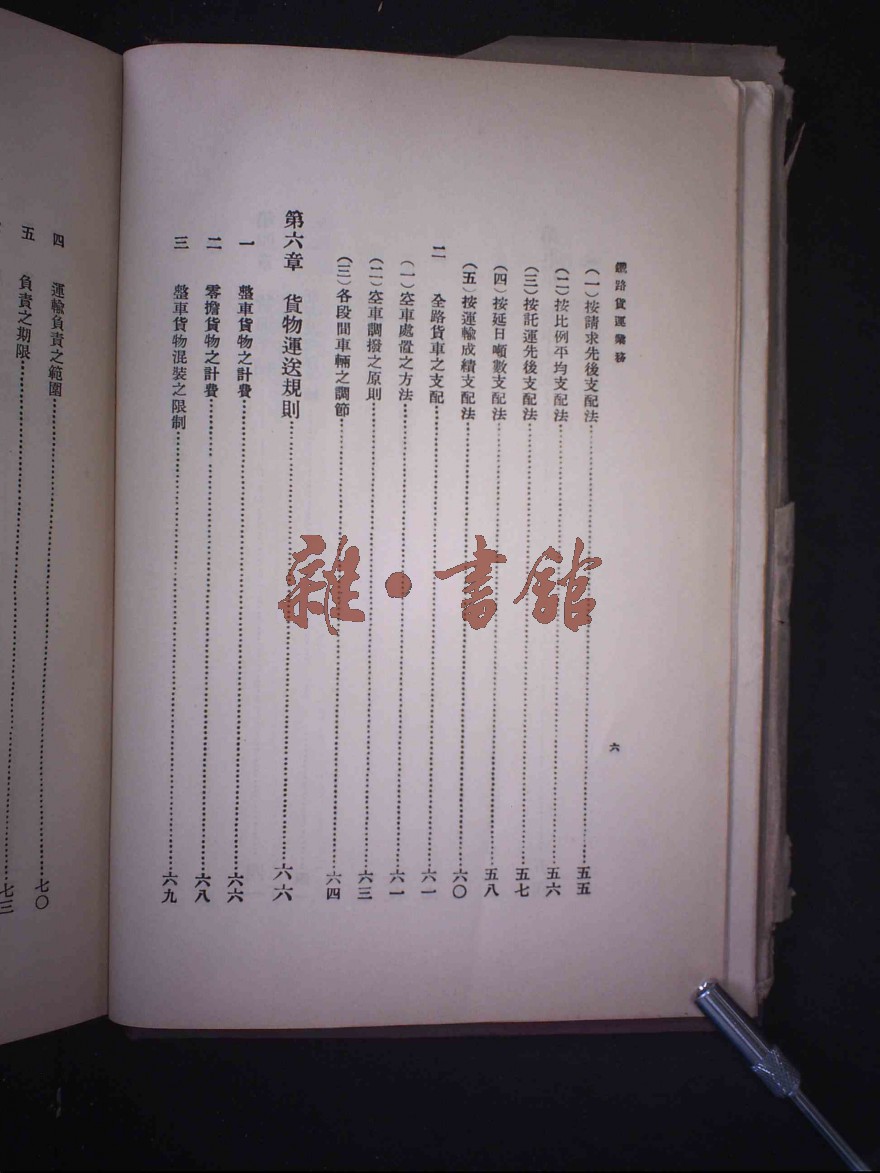 鐵路貨運業務
六
(一)按請求先後支配法……五五
(二)按比例平均支配法……五六
(三)按託運先後支配法……五七
(四)按延日噸數支配法……五八
(五)按運輸成績支配法……六〇
二 全路貨車之支配……六一
(一)空車處置之方法……六一
(二)空車調撥之原則……六三
(三)各段間車輛之調節……六四
第六章 貨物運送規則……六六
一 整車貨物之計費……六六
二 零擔貨物之計費……六八
三 整車貨物混裝之限制……六九
四 運輸負責之範圍……七〇
五 負責之期限……七三
雜·書館